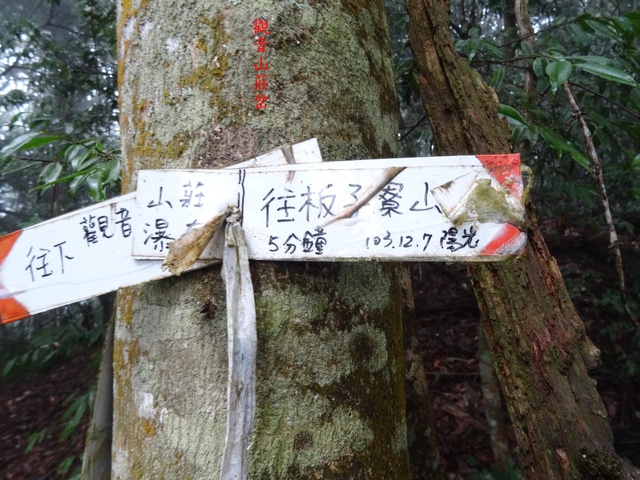 觀音山莊岔
往下
觀音
山莊
瀑
往板子寮山
5分鐘
103.12.7 陽光